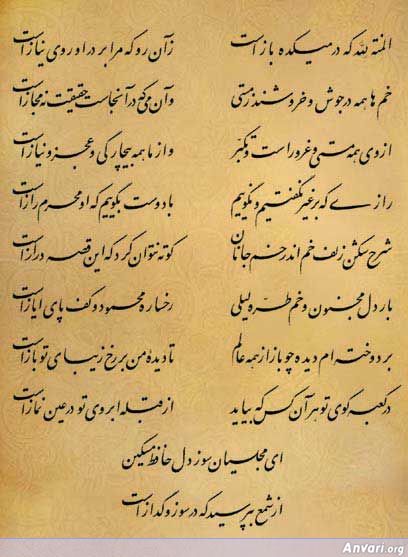 المنة لله که در میکده باز است زآن رو که مرا بر در او روی نیاز است
خم ها همه در جوش و خروشند ز مستی وآن می که در آنجاست حقیقت نه مجاز است
از وی همه مستی و غرور است و تکبر وز ما همه بیچارگی و عجز و نیاز است
رازی که بر غیر نگفتیم و نگوییم با دوست بگوییم که او محرم راز است
شرح شکن زلف خم اندر خم جانان کوته نتوان کرد که این قصه دراز است
بار دل مجنون و خم طره لیلی رخساره محمود و کف پای ایاز است
بر دوخته ام دیده چو باز از همه عالم تا دیده من بر رخ زیبای تو باز است
در کعبه کوی تو هر آن کس که بیاید از قبله ابروی تو در عین نماز است
ای مجلسیان سوز دل حافظ مسکین
از شمع بپرسید که در سوز و گداز است
Anvari.org